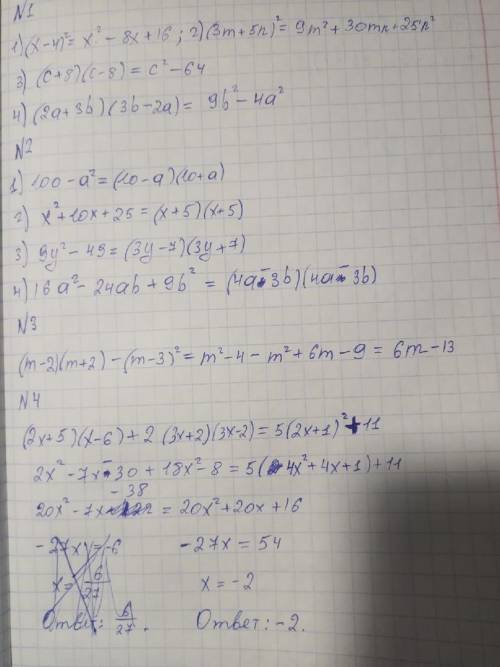 №1
1) (x-4)² = x² - 8x + 16 ; 2) (3m + 5n)² = 9m² + 30mn + 25n²
3) (c+8)(c-8) = c² - 64
4) (2a+3b)(3b-2a) = 9b² - 4a²
№2
1) 100 - a² = (10-a)(10+a)
2) x² + 10x + 25 = (x+5)(x+5)
3) 9y² - 49 = (3y-7)(3y+7)
4) 16a² - 24ab + 9b² = (4a-3b)(4a-3b)
№3
(m-2)(m+2) - (m-3)² = m² - 4 - m² + 6m - 9 = 6m - 13
№4
(2x+5)(x-6) + 2(3x+2)(3x-2) = 5(2x+1)² + 11
2x² - 7x - 30 + 18x² - 8 = 5(4x² + 4x + 1) + 11
20x² - 7x - 38 = 20x² + 20x + 16
-27x = -6 -27x = 54
x = 6/27 x = -2
Ответ: 6/27. Ответ: -2.